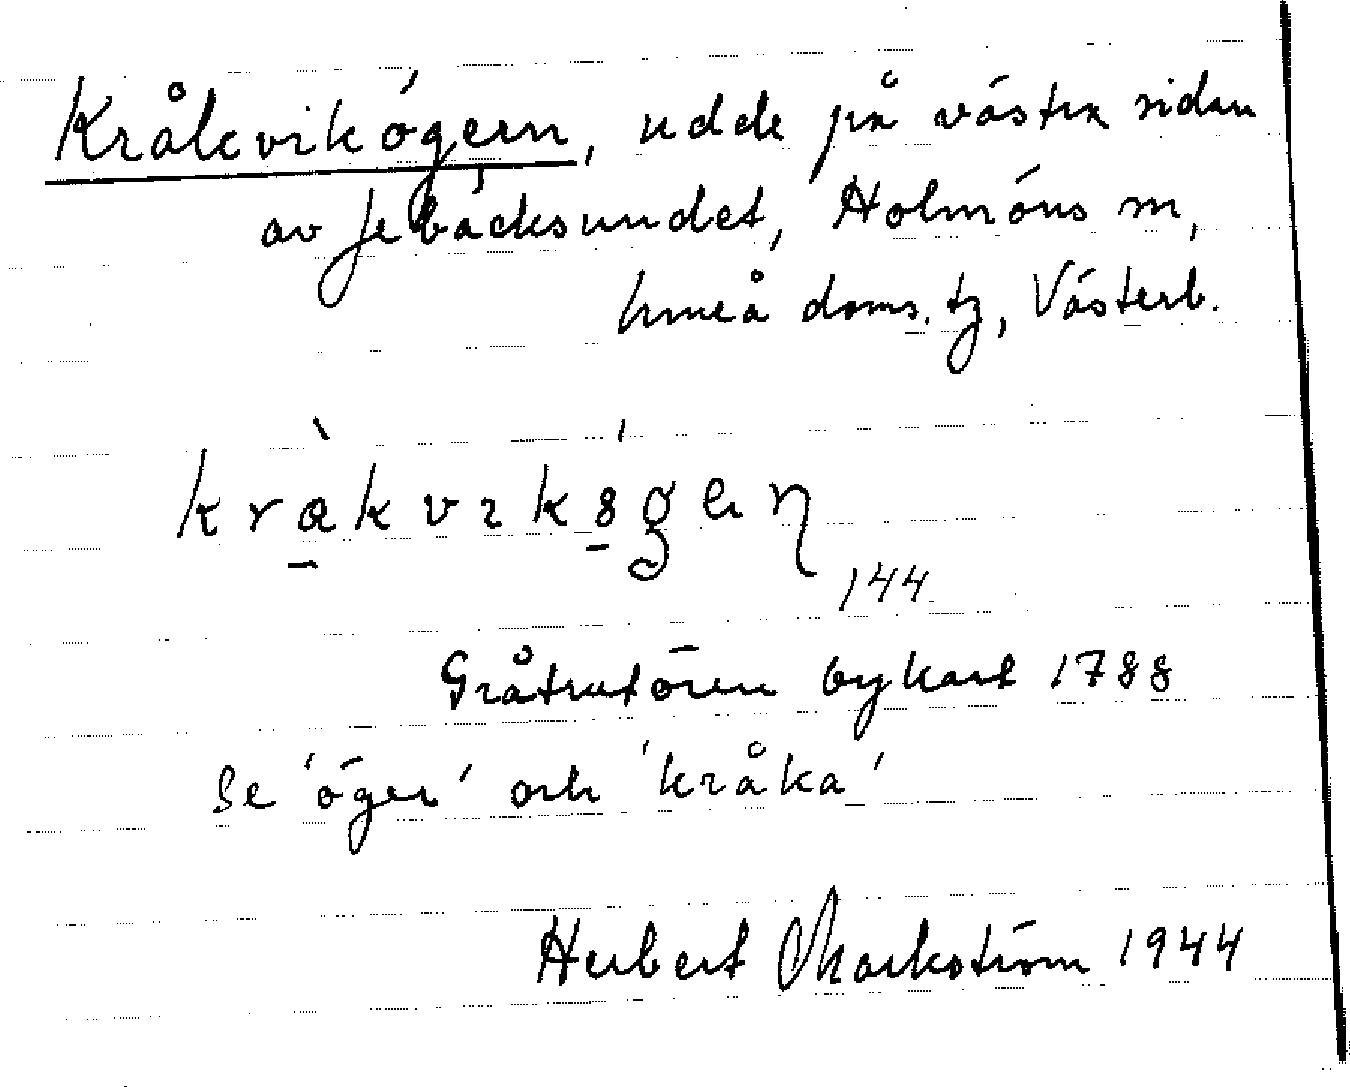 Kråkvikögern, udde på västra sidan
av Jebäcksundet, Holmöns sn,
Umeå doms. tg, Västerb.
144
Gråtrutören bykart 1788
Se 'öger' och 'kråka'
Herbert Markström 1944